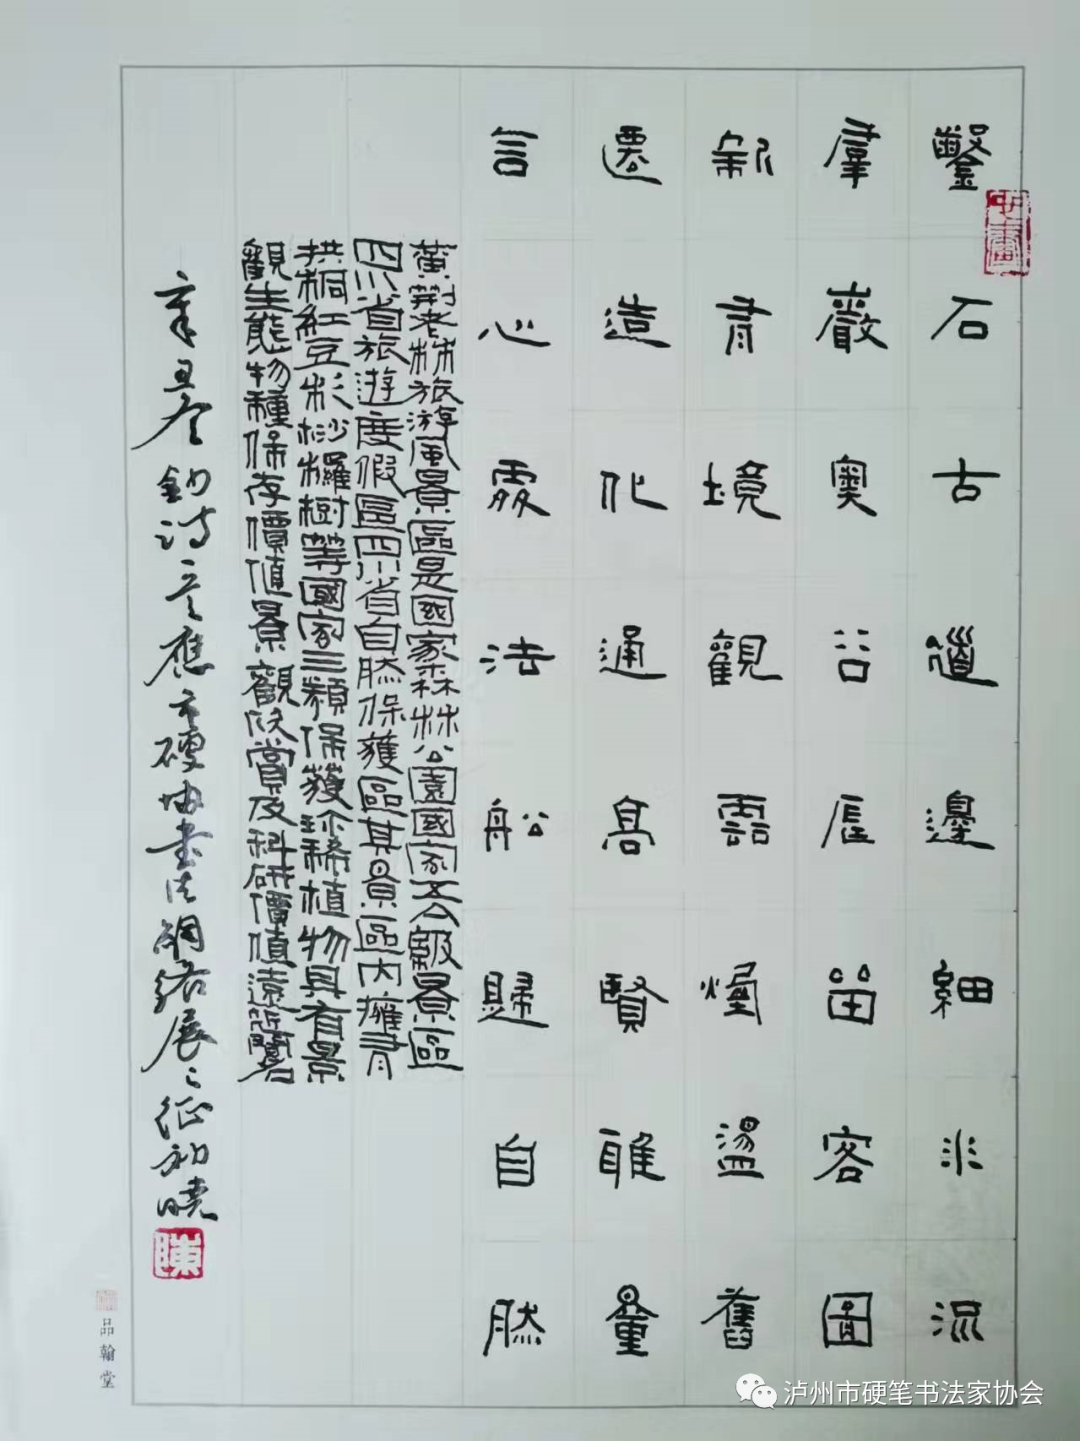 鑿石古道邊細水流
群巖奧谷底留客圖
新有境觀雲煙溫舊
遷造化通高賢雖量
言心處法船歸自然
黃荊老林旅游風景區是國家森林公園國家AAAA級景區
四川省旅遊度假區四川省自然保護區其景區內擁有
珙桐紅豆杉桫欏樹等國家三類保護珍稀植物具有景
觀生態物種保存價值景觀欣賞及科研價值遠近馨名
辛丑冬鈔詩言應市硬協書法網絡展之征初曉
品翰堂
泸州市硬笔书法家协会